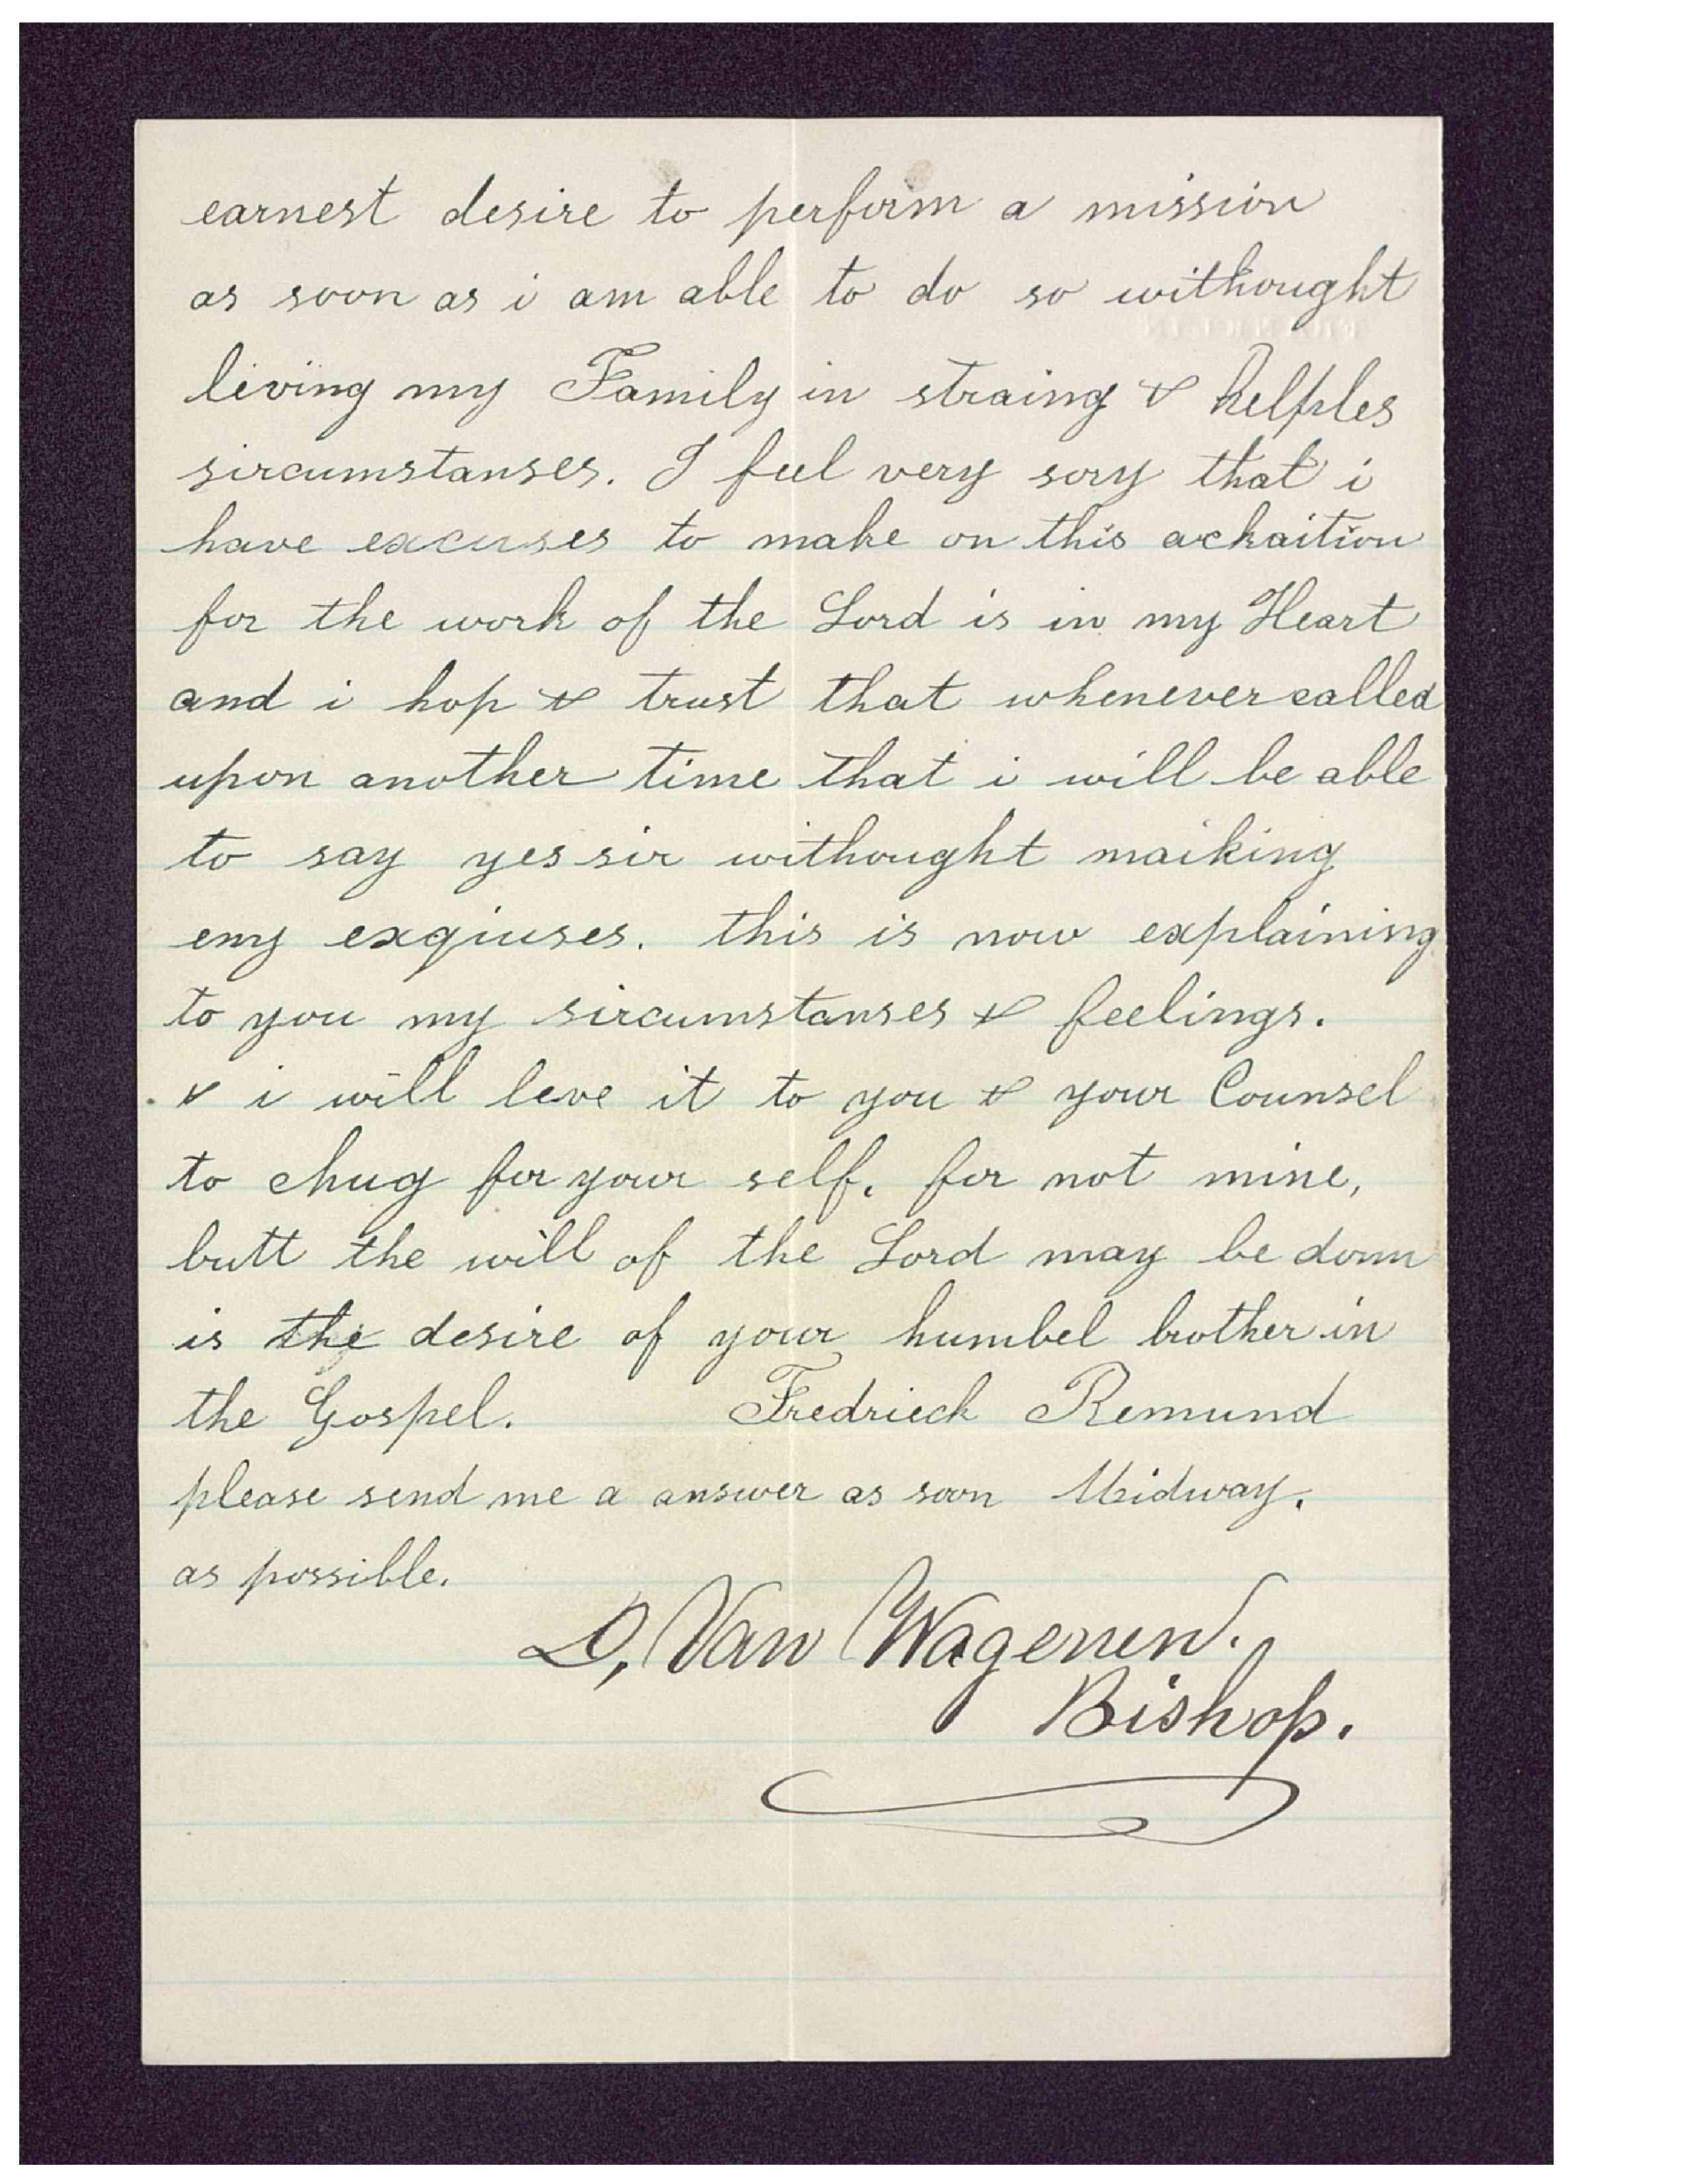 earnest desire to perform a mission
as soon as i am able to do so withought
living my Family in straing & helples
sircumstanses. I feel very sory that i
have excuses to make on this ackaition
for the work of the Lord is in my Heart
and i hop & trust that whenever called
upon another time that i will be able
to say yes sir withought maiking
eny exqiuses. this is now explaining
to you my sircumstanses & feelings.
& i will leve it to you & your Counsel
to chug for your self. for not mine,
butt the will of the Lord may be donn
is the desire of your humbel brother in
the Gospel. Fredrieck Remund
please send me a answer as soon Midway.
as possible.
D, Van Wagenen.
Bishop.